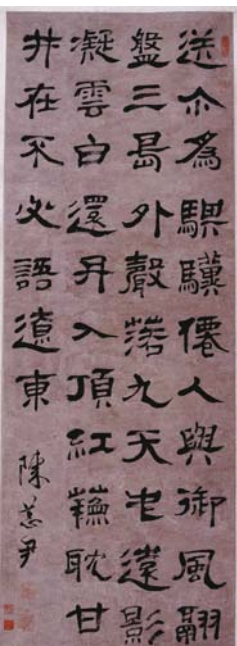 送尒為騏驥僊人與御風翮
盤三島外聲落九天中遠影
凝雲白還丹入頂紅蘓耽甘
井在不必語遼東
陳恭尹